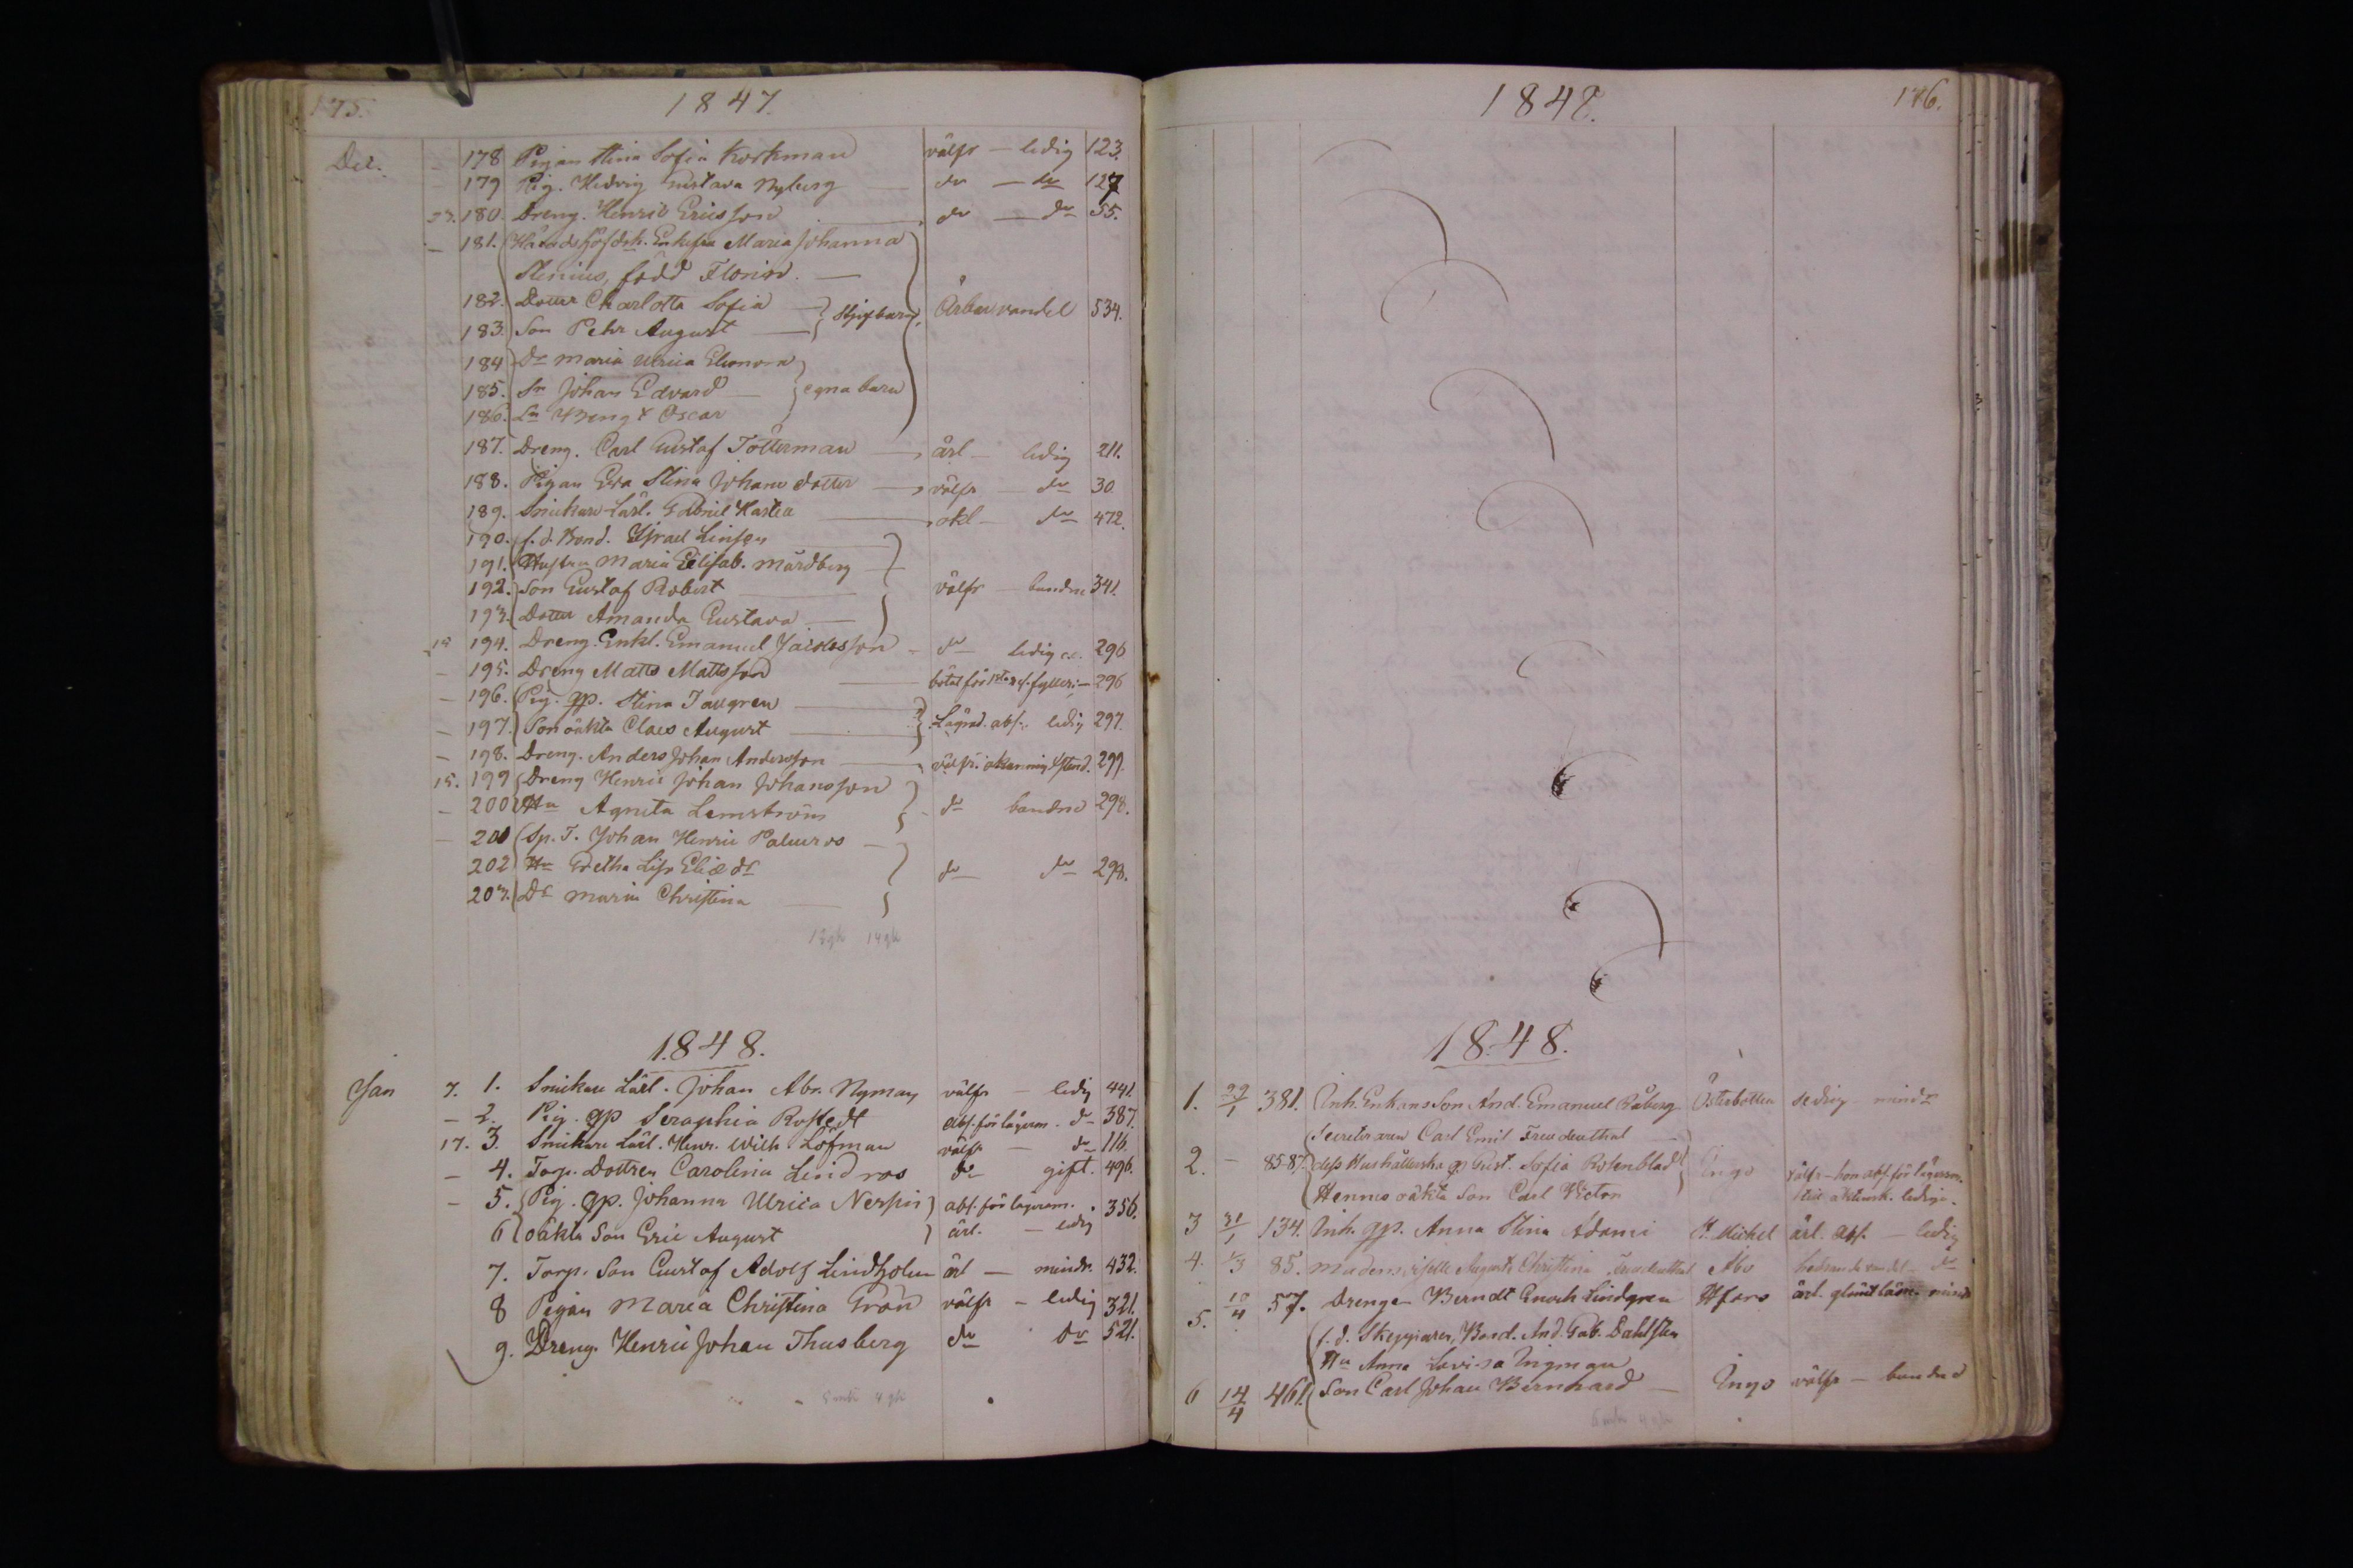 175.
1847.
Dec. – 178 Pigan Stina Sofia Korkman välfr – ledig 123.
– 179 Pig. Hedvig Gustava Nyberg do – do 127
180. Dreng. Henric Ericsson do – do 55.
– 181. Enkefru Maria Johanna
Stenius, född Florin. –
182. Dotter Charlotta Sofia – Styfbarn, Ärbar vandel 534.
183. Son Pehr August –
184 Dr Maria Ulrica Eleonora
185. Sn Johan Edvard – egna barn
186. Sn Bengt Oscar
187. Dreng. Carl Gustaf Tötterman – ärl – ledig 211.
188. Pigan Eva Stina Johans dotter – välfr – do 30
189. Snickare Lärl. Gabriel – okl – do 472.
190. f. d. Bond. Israel Linsen
191. Hustru Maria Elisab. Mårdberg –
192. Son Gustaf Robert välfr – bundne 341.
193. Dotter Amanda Gustava –
194. Dreng. Enkl. Emanuel Jacobsson – do ledig 296
– 195. Dreng Matts Mattsson bötat för 1sta fylleri – 296
– 196. Pig. qp. Stina Tavgren
– 197. Son oäkta Claes August Lägrad. abs. ledig 297.
– 198. Dreng. Anders Johan Andersson välfr. 299.
15. 199 Dreng Henric Johan Johansson
– 200 Hu Agneta Lemström do bundne 298.
– 201 Sp. T. Johan Henric Palmros –
202 Hu Gretha Lisa Eliæ dr do do 298.
203. Dr Maria Christina
1848.
Jan 7. 1. Snickare Lärl. Johan Abr. Nyman välfr – ledig 441.
– 2. Pig. qp Seraphia Rostedt abs. för lägersm. do 387.
17. 3. Snickare Lärl. Henr. Wilh. Löfman välfr – do 116.
– 4. Torp. Dottren Carolina Lindroos do gift. 496.
– 5. Pig. qp. Johanna Ulrica Nerpin abs. för lägersm. 356.
6 oäkta Son Eric August ärl. – ledig
7. Torp. Son Gustaf Adolf Lindholm ärl – mindr. 432.
8 Pigan Maria Christina Grön välfr – ledig 321.
9. Dreng. Henric Johan Thusberg do do 521.
1848.
176.
1848.
1. 29/1 381. Inh. Enkans Son And. Emanuel Råberg Österbotten ledig mindr
Secreteraren Carl Emil Freudenthal
2. – 85-87. dess Hushållerska qp Gust. Sofia Rosenblad Ingo välfr – hon abs. för lägersm.
Hennes oäkta Son Carl Victor ledige.
3 31/1 134. Inh. qp. Anna Stina Adami St. Michel ärl. abs. – ledig
4. 1/3 85. Mademoiselle Augusta Christina Freudenthal Åbo hedrande vandel – do
5. 10/4 57. Drengen Berndt Enoch Lindgren Hfors ärl.
f. d. Skeppiaren, Bond. And. Gab. Dahlsten
Hu Anna Lovisa Ingman
6 14/4 461. Son Carl Johan Bernhard – Ingo välfr – bundne